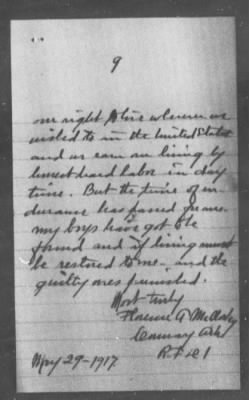 9
our right to live wherever we
wished to in the United States
and we earn our living by
honest hard labor in day
time. But the time of en-
durance has passed for me.
my boys have got to be
found and if living must
be restored to me. and the
guilty ones punished.
Most truly
Florence A
Conway Ark
R F D 1
May 29-1917